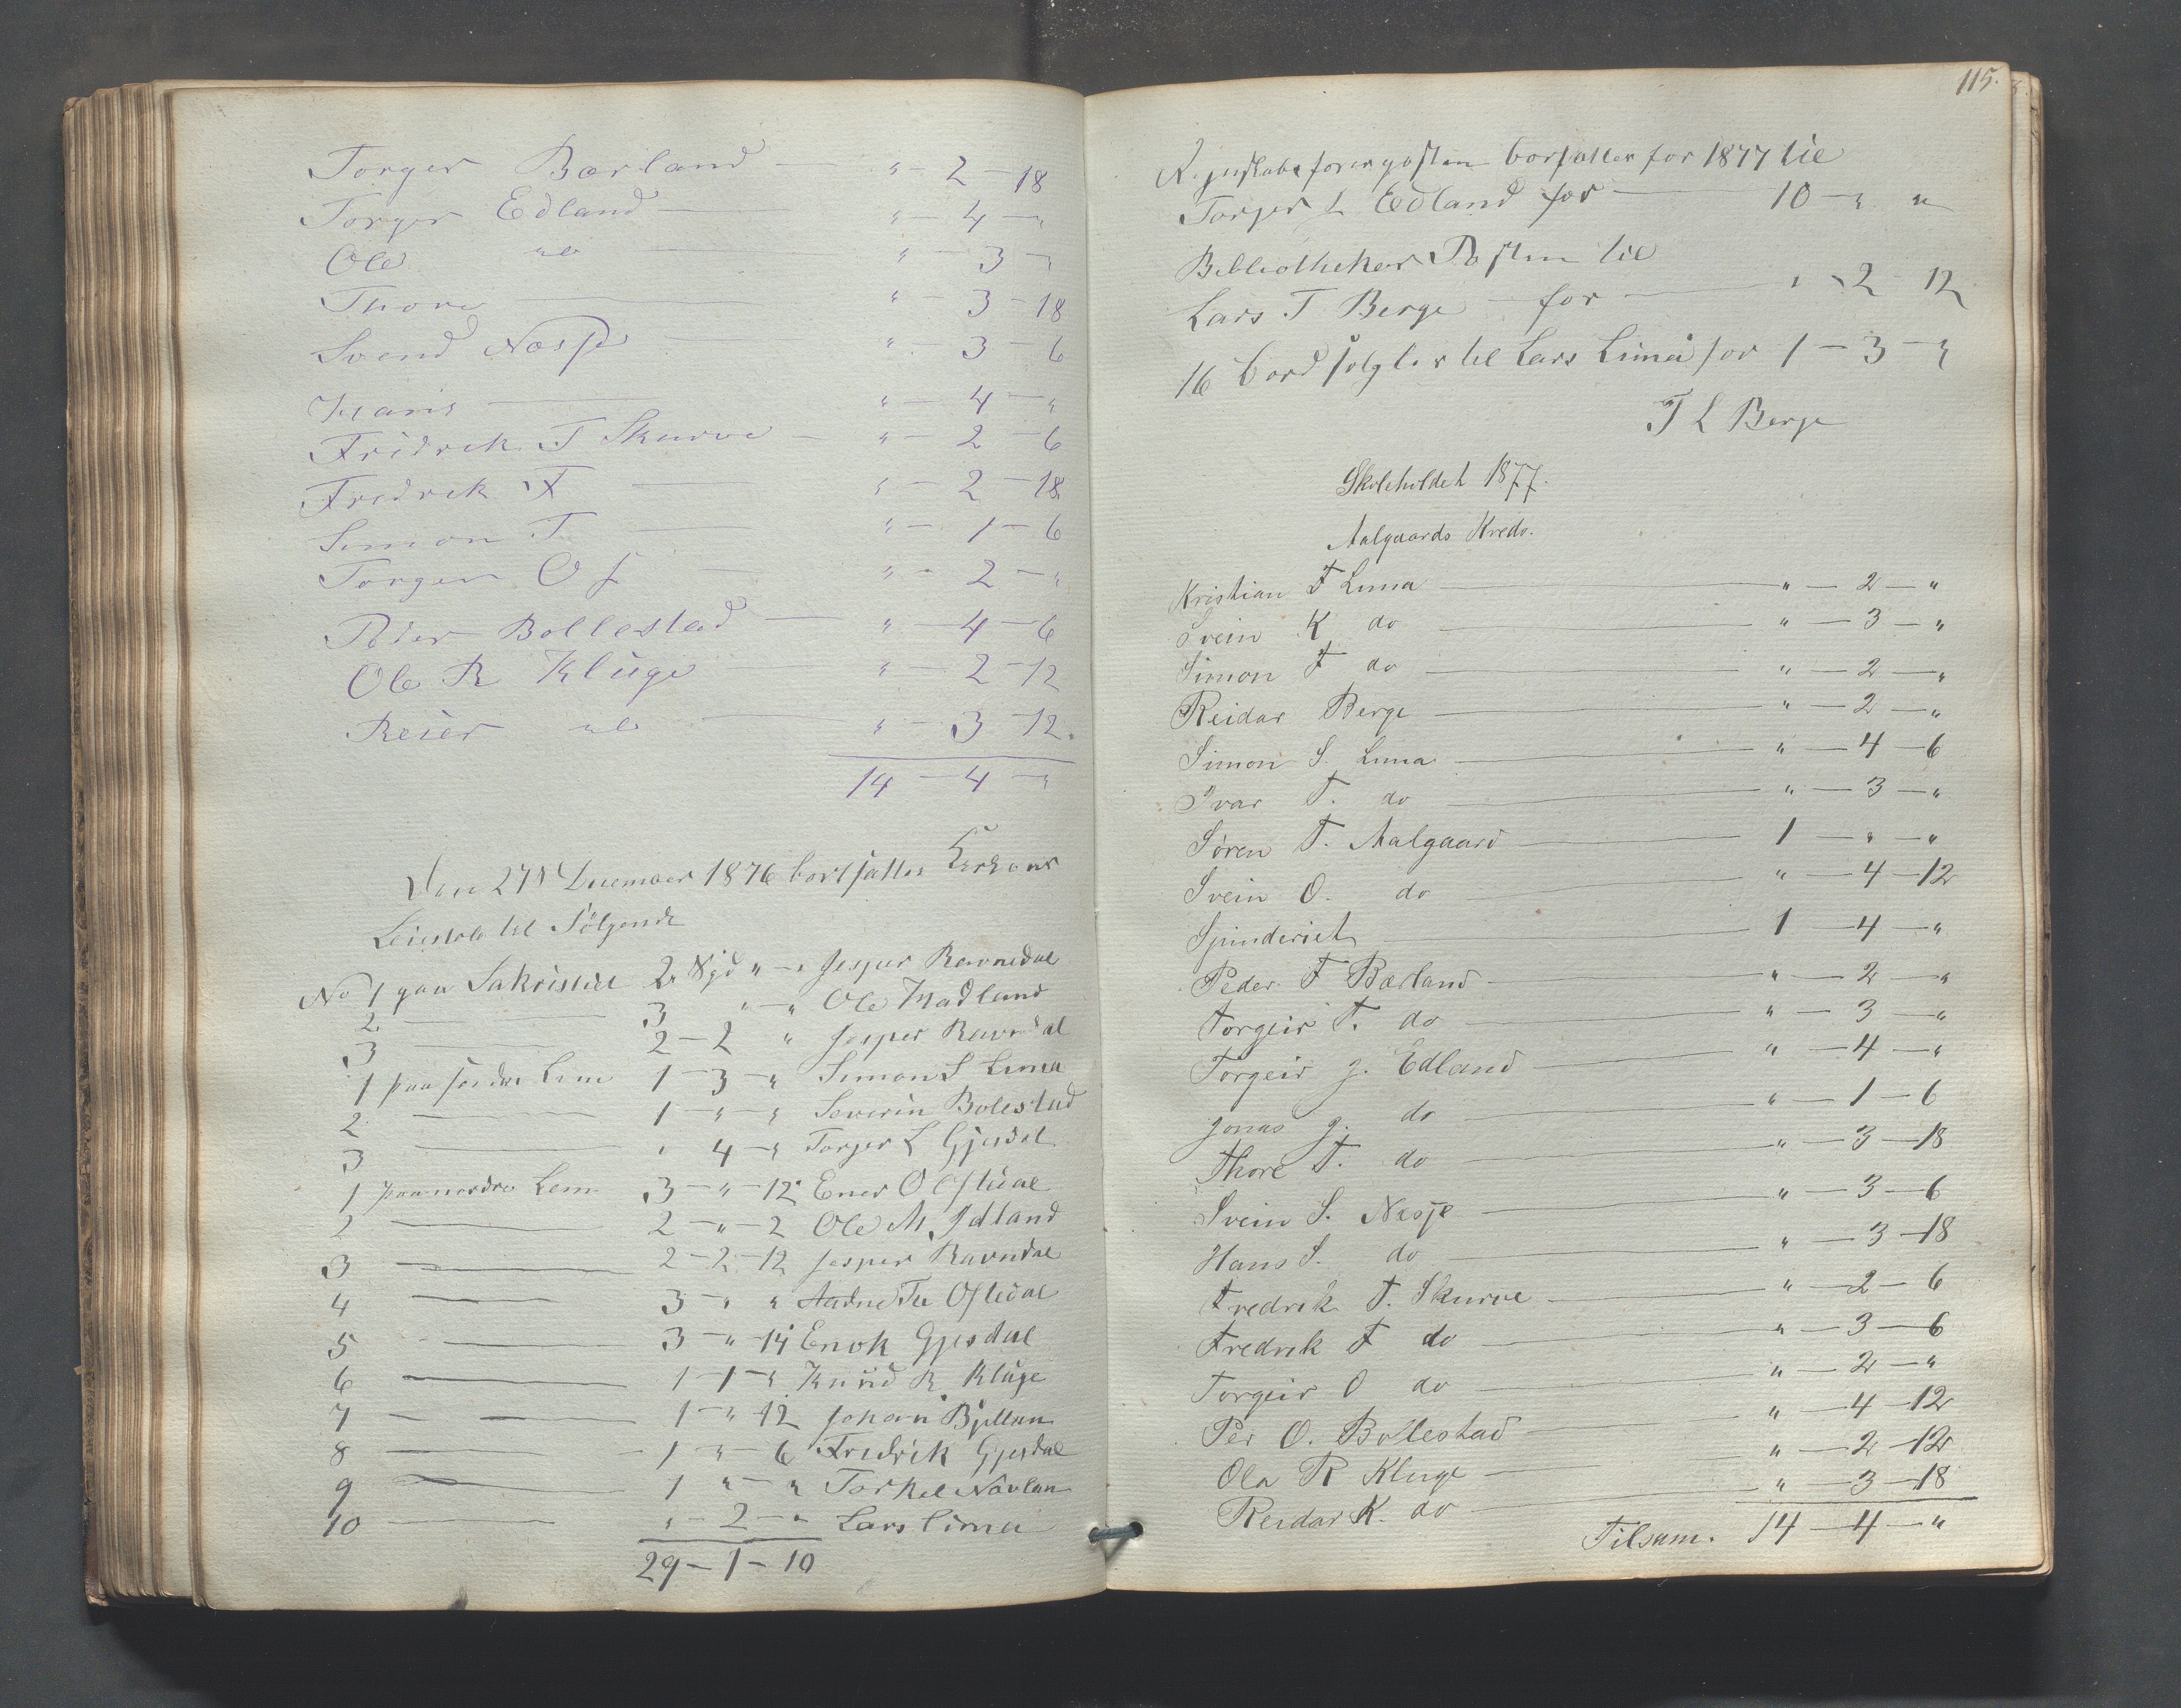 Torger Bærland — " — 2 — 18
Torger Edland — " — 4 — "
Ole do — " — 3 — "
Thore — " — 3 — 18
Svend Næsse — " — 3 — 6
Hans — " — 4 — "
Fridrek T Skurve — " — 2 — 6
Fredrek F — " — 2 — 18
Simon T — " — 1 — 6
Torger O S — " — 2 — "
Peder Bollestad — " — 4 — 6
Ole R Kluge — " — 2 — 12
Reier do — " — 3 — 12.
14 — 4 — "
Den 27d Desember 1876 bortsattes Kirkens
Leiestole til Følgende
No 1 paa Sakristiet 2 Spd " — " Jesper Ravnedal
2 — 3 " — " Ole Madland
3 — 2 — 2 " Jesper Ravndal
1 paa søndre Lem 1 — 3 — " Simon S Lima
2 — 1 — " — " Severin Bolestad
3 — " 4 — " Torger L Gjesdal
1 paa nordre Lem 3 — " — 12 Ener O Oftedal
2 — 2 — " — 2 Ole M Idland
3 — 2 — 2 — 12 Jesper Ravndal
4 — 3 — " " Aadne Oftedal
5 — 3 — " — 14 Enok Gjesdal
6 — 1 — 1 — " Knud R Kluge
7 — 1 — " 12 Johan
8 — 1 — " — 6 Fredrik Gjesdal
9 — 1 " — " Torkel Nævlan
10 — " — 2 — " Lars Lima
29 — 1 — 10
115.
Regnskabsførerposten bortsattes for 1877 til
Torger L Edland for — 10 — " "
Bibliothekar Posten til
Lars T Berge for — " 2 12
16 bord solgtes til Lars Lima for 1 — 3 — "
T L Berge
Skoleholdet 1877.
Aalgaards Kreds.
Kristian F Lima — " — 2 — "
Svein K do — " — 3 — "
Simon F do — " — 2 — "
Reidar Berge — " — 2 — "
Simon S. Lima — " — 4 — 6
Ivar T. do — " — 3 — "
Søren T. Aalgaard — 1 — " — "
Svein O. do — " — 4 — 12
Spinderiet — 1 — 4 — "
Peder F Bærland — " — 2 — "
Torgeir T. do — " — 3 — "
Torgeir J. Edland — " — 4 — "
Jonas J. do — " — 1 — 6
Thore T. do — " — 3 — 18
Svein S. Nesje — " — 3 — 6
Hans S. do — " — 3 — 18
Fredrik T. Skurve — " — 2 — 6
Fredrik F do — " — 3 — 6
Torgeir O do — " — 2 — "
Per O. Bolestad — " — 4 — 12
Ola R Kluge — " — 2 — 12
Reidar K. do — " — 3 — 18
Tilsam. 14 — 4 — "